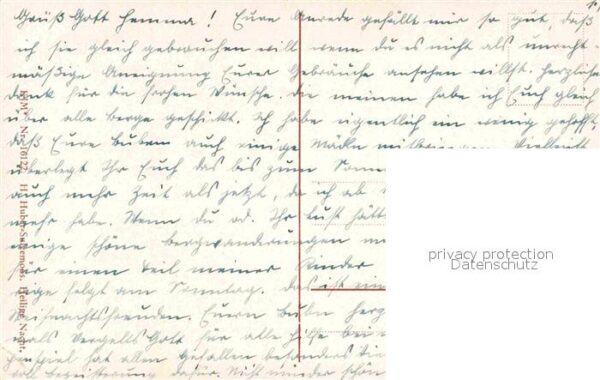 Grüß Gott Hemma! Eure Anrede gefällt mir so gut, daß
ich sie gleich gebrauchen will wenn du es nicht als unrecht-
mäßige Aneignung Eurer Gebräuche ansehen willst. Herzlichen
Dank für die frohen Wünsche, die meinen habe ich Euch gleich
über alle Berge geschickt. Ich habe eigentlich ein wenig gehofft,
daß Eure Buben auch einige Mädln mitbringen. Vielleicht
überlegt Ihr Euch das bis zum
auch mehr Zeit als jetzt, da ich ab
mehr habe. Wenn du od. Ihr Lust hätt
einige schöne Bergwanderungen
für einen Teil meiner Kinder
folgt am Sonntag. Das ist ein
Weihnachtsfreuden. Euern Bubn
als Vergelts Gott für alle Hilfe bei
hat allen Gefallen besonders
Begeisterung dafür. Nicht minder schön
Nr. 10127 H. Huber-Sulzemoos, Heilige Nacht.
privacy protection
Datenschutz